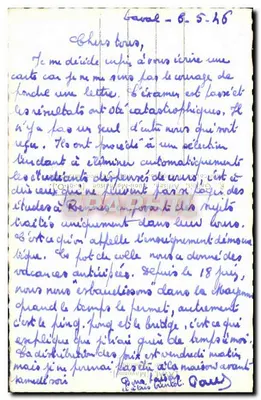 Laval - 6-5-46
Chers tous,
Je me décide enfin à vous écrire une
carte car je ne me sens pas le courage de
pondre une lettre. L'examen est passé et
les résultats ont été catastrophiques. Il
n'y a pas un seul d'entre nous qui soit
reçu. Ils ont procédé à une sélection
tendant à éliminer automatiquement
les étudiants dispensés de cours, c'est à
dire ceux qui ne peuvent pas
études à Rennes des sujets
traités uniquement dans leur cours.
C'est ce qu'on appelle l'enseignement démocra
tique. Le pot de colle nous a donné des
vacances anticipées. Depuis le 18 juin,
nous nous "esbaudissons" dans la Mayenne
quand le temps le permet, autrement
c'est le ping-pong et le bridge, c'est ce qui
explique que j'ai guère de temps à moi.
La distribution des prix est vendredi matin
mais je ne pourrai pas être à la maison avant
samedi soir. Bons baisers
et à bientôt.